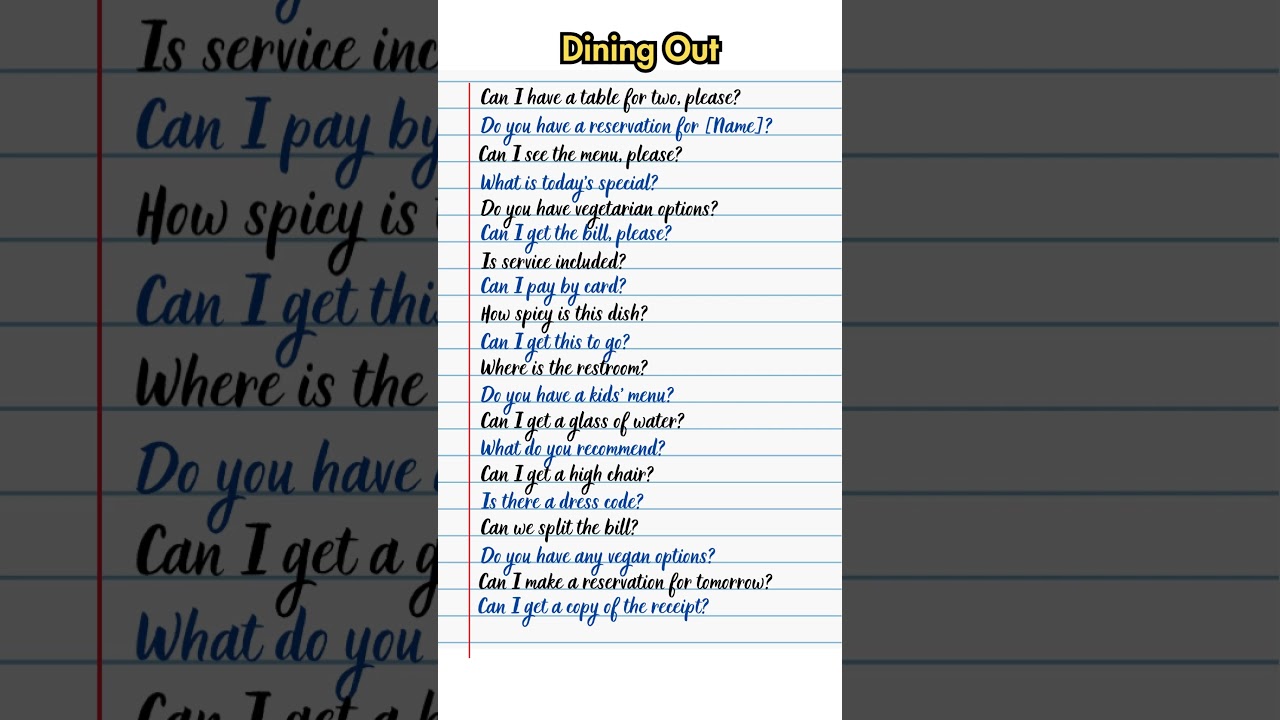 Dining Out
Can I have a table for two, please?
Do you have a reservation for [Name]?
Can I see the menu, please?
What is today's special?
Do you have vegetarian options?
Can I get the bill, please?
Is service included?
Can I pay by card?
How spicy is this dish?
Can I get this to go?
Where is the restroom?
Do you have a kids' menu?
Can I get a glass of water?
What do you recommend?
Can I get a high chair?
Is there a dress code?
Can we split the bill?
Do you have any vegan options?
Can I make a reservation for tomorrow?
Can I get a copy of the receipt?
Is service inc
Can I pay by
How spicy is
Can I get thi
Where is the
Do you have
Can I get a g
What do you
Can I get a h